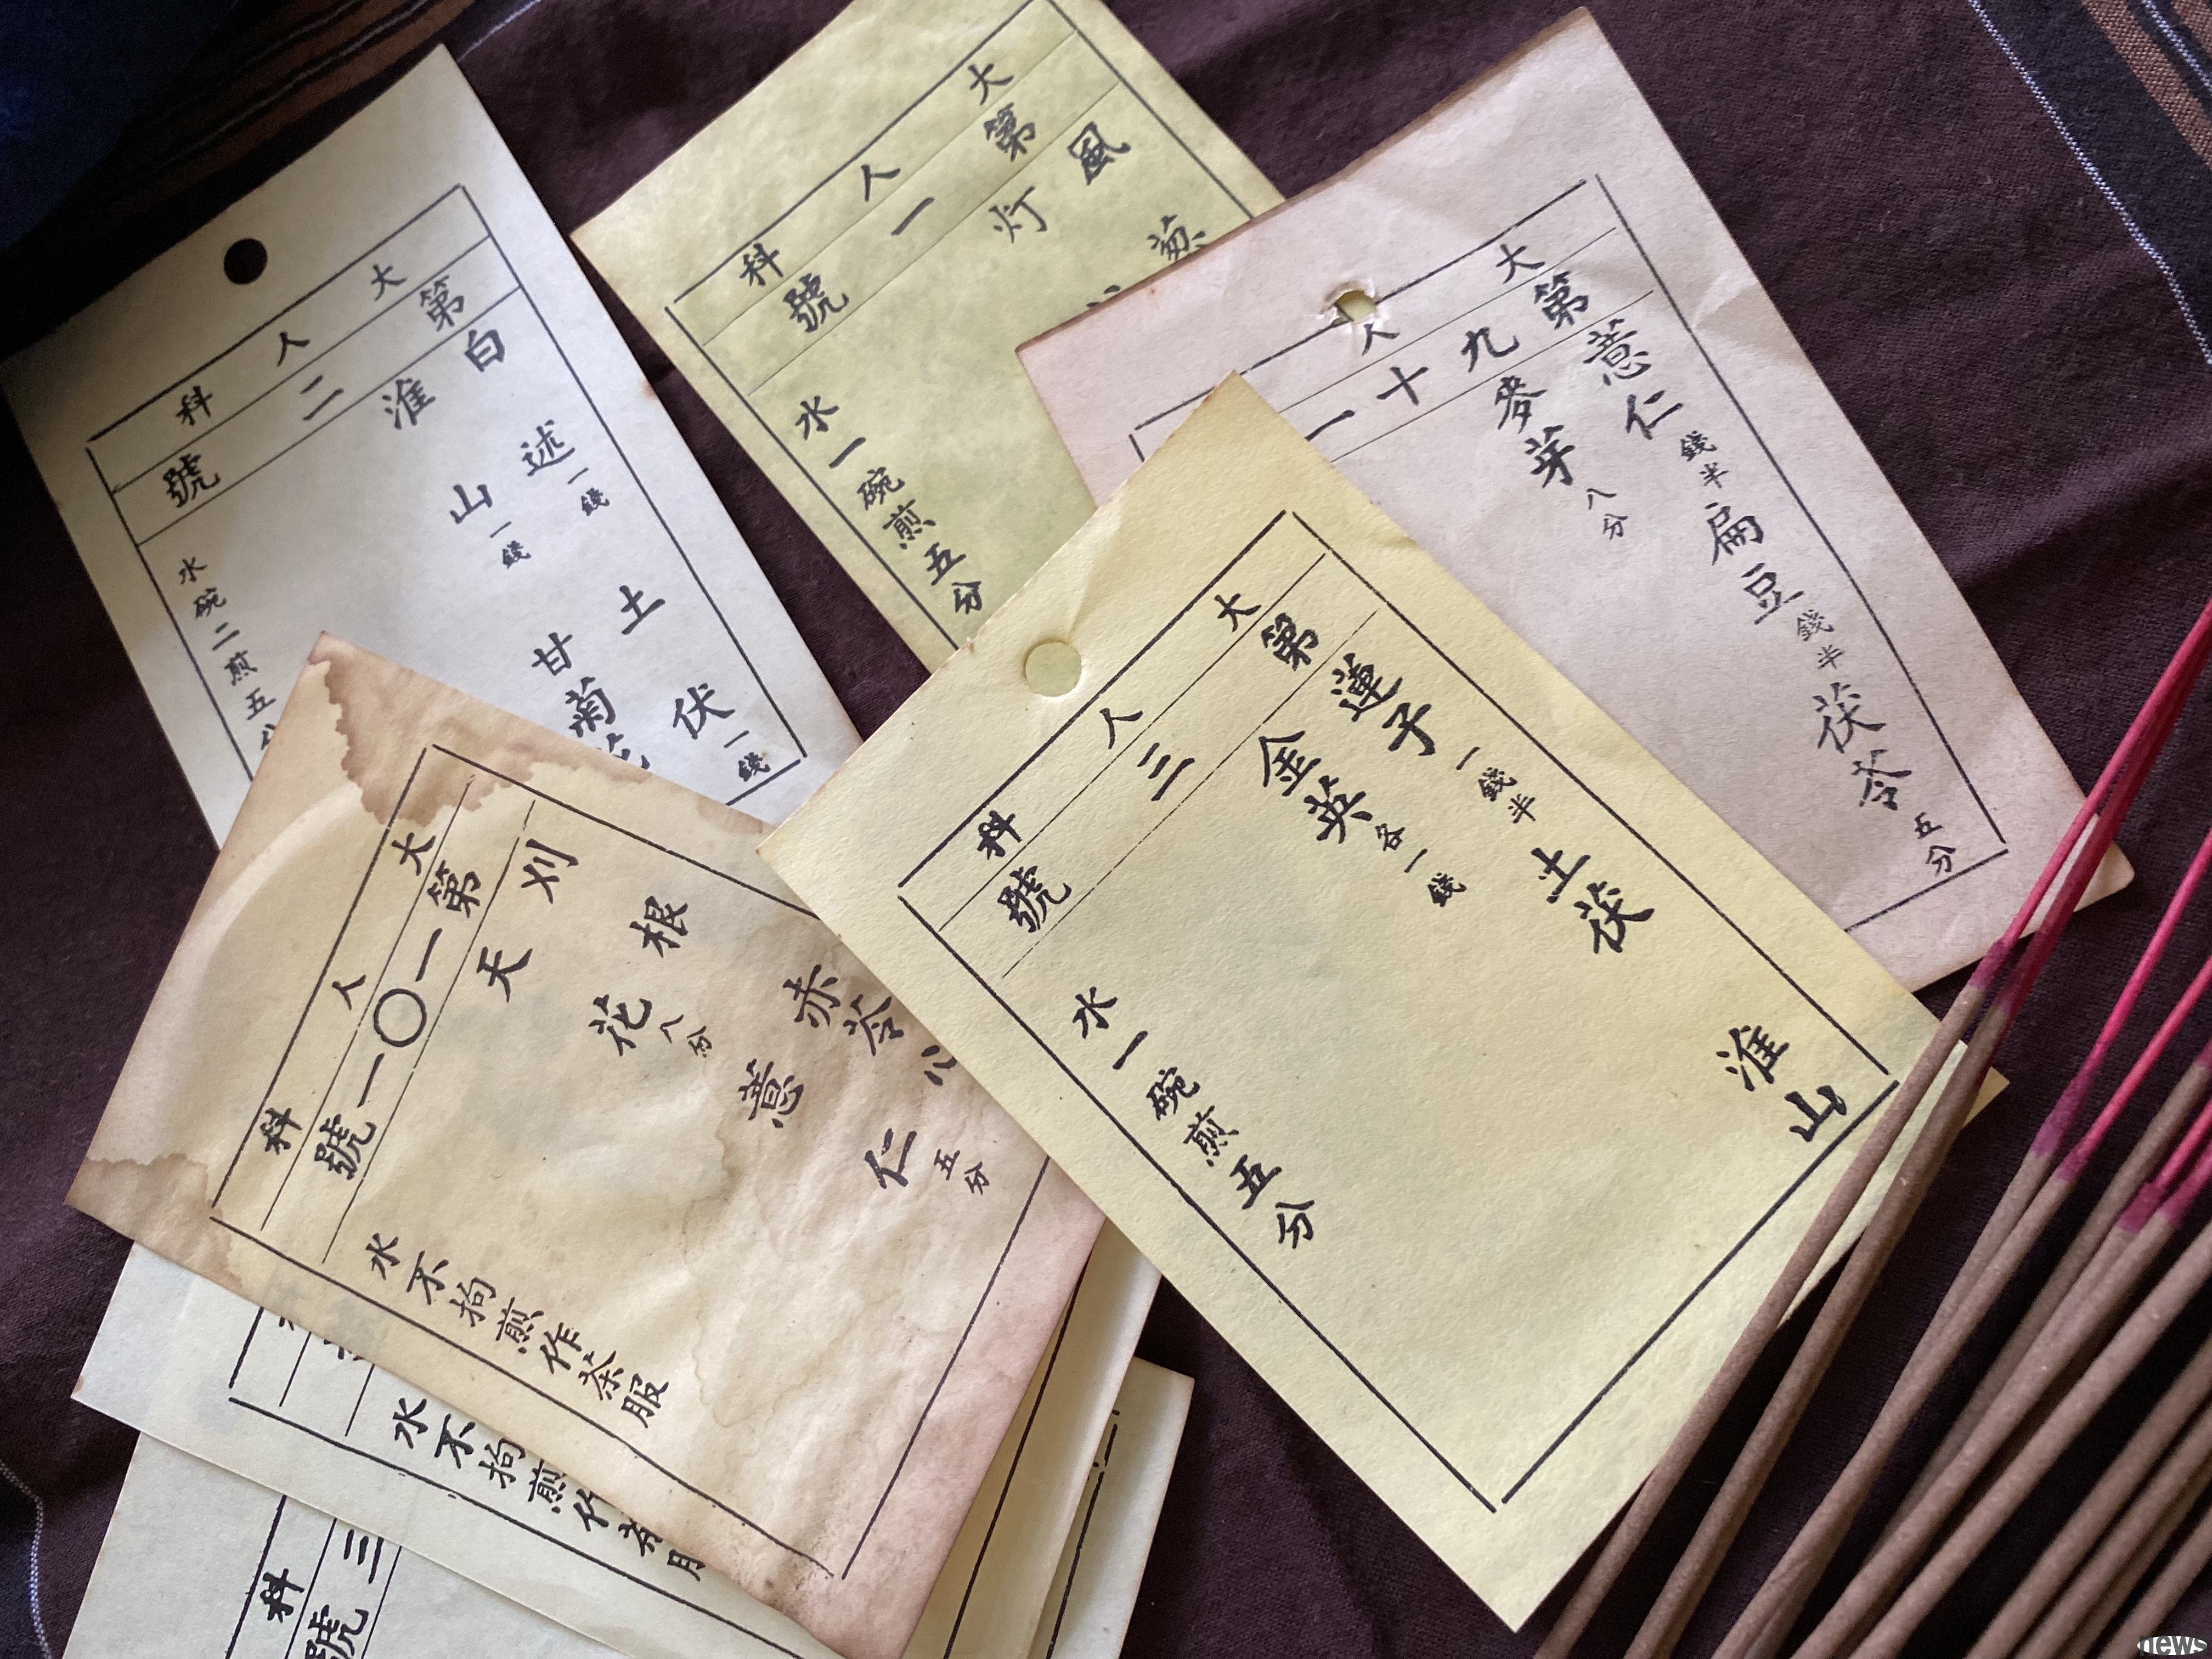 大人科
第二號
白述一錢 土伏一錢
淮山一錢 甘菊
水碗二煎五分
大人科
第一號
風 葱
灯
水一碗煎五分
大人
第九十一
薏仁錢半 扁豆錢半 茯苓五分
麥芽八分
大人科
第三號
蓮子一錢半 土茯 淮山
金英各一錢
水一碗煎五分
大人科
第一〇一號
刈根 赤苓八
天花八分 薏仁五分
水不拘煎作茶服
水不拘煎作茶
科
三號
news